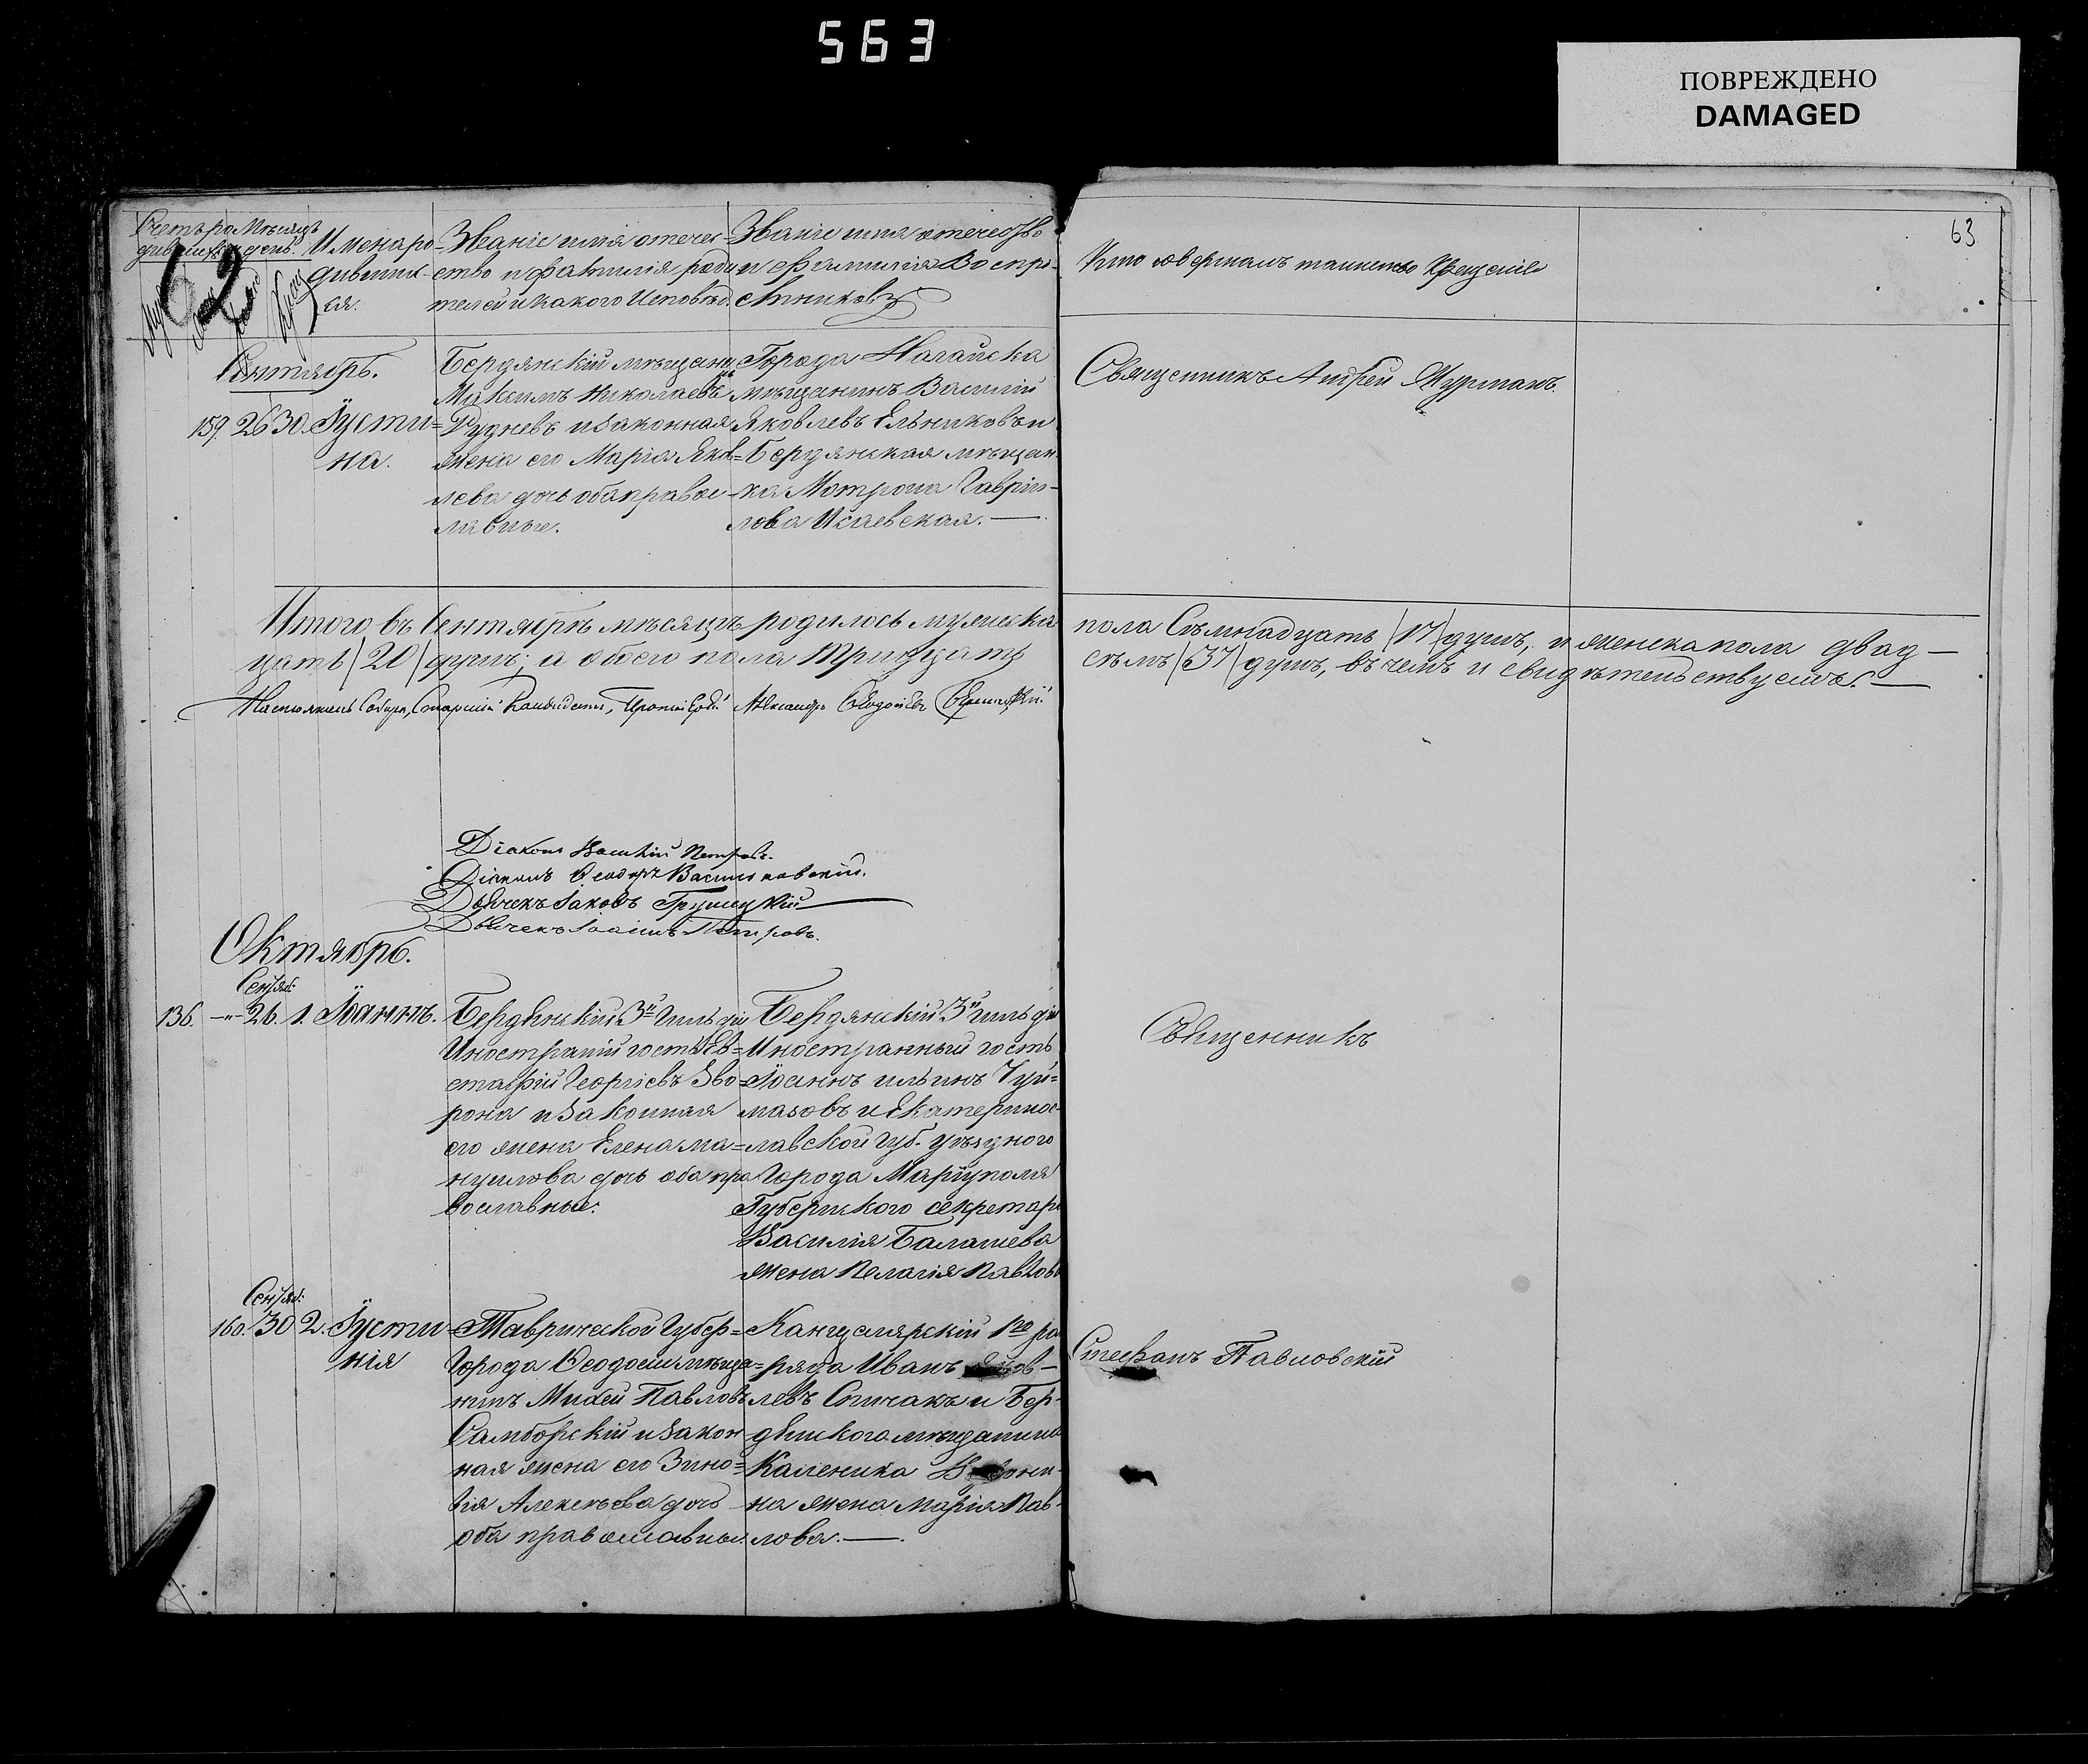 563
ПОВРЕЖДЕНО
DAMAGED
63
Счетъ ро Мѣсяцъ
дившихся день
62
Имена ро-
дивших-
ся.
Званіе имя отечес-
тво и фамилія роди
телей и какого Исповѣд.
Званіе имя отечество
и фамилія Воспрі-
емниковъ
Кто совершалъ таинство Крещенія
Сентябрь.
159. 26 30. Іусти-
на.
Бердянскій мѣщани
нъ
Максимъ Николаевъ
Рудневъ и законная
жена его Марія Яков-
лева дочь оба правос-
лавные.
Города Нагайска
мѣщанинъ Василій
Яковлевъ Ельниковъ и
Бердянская мѣщан-
ка Мотрона Гаврі-
лова Исаевская. —
Священникъ Андрей Мурманъ.
Итого въ Сентябрѣ мѣсяцѣ родилось мужеска пола Сѣмнадцать /17/ душъ, и женска пола двад-
цать /20/ душъ; а обоего пола Тридцать сѣмъ /37/ душъ, въ чемъ и свидѣтельствуемъ. —
Настоятель Собора, Старшій Протоіерей Александръ
Діаконъ Василій Петровъ.
Діаконъ Ѳеодоръ Васильковскій.
Дьячекъ Іаковъ Грушецкій
Дьячекъ Іоаннъ Петровъ.
Октябрь.
Сентяб:
136. -"- 26. 1. Іоаннъ.
Бердянскій 3й Гильдіи
Иностранній гость Ев-
стафій Георгіевъ Зво-
рона и законная
его жена Елена ма-
нуилова дочь оба пра
вославные.
Бердянскій 3й гильдіи
Иностранный гость
Іоаннъ ильинъ Чуй-
мазовъ и Екатеринос-
лавской Губ. уѣзднаго
Города Маріуполя
Губернского секретаря
Василія Балашева
жена Пелагія Павлов
Священникъ
Сентяб:
160. 30 2. Іусти-
нія
Таврической Губер-
Города Ѳеодосіи мѣща-
нинъ Михей Павловъ
Самборскій и закон
ная жена его Зино-
вія Алексѣева дочь
оба православные.
Канцелярскій 1го ра
ряда Иванъ Яков-
левъ Спичакъ и Бер-
дянского мѣщанина
Каленика
на жена Марія Пав-
лова. —
Стефанъ Павловскій